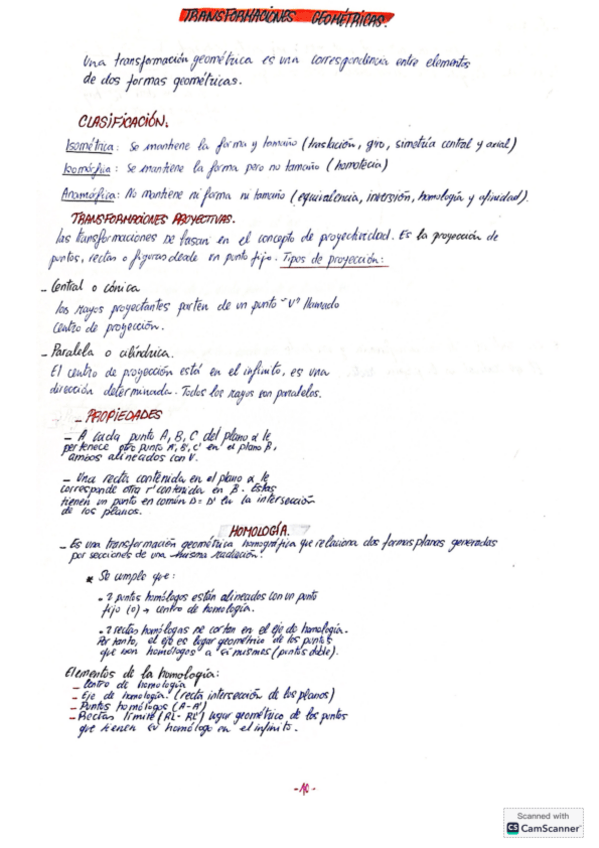 TRANSFORMACIONES GEOMÉTRICAS.
Una transformación geométrica es una correspondencia entre elementos
de dos formas geométricas.
CLASIFICACIÓN.
Isométrica: Se mantiene la forma y tamaño (traslación, giro, simetría central y axial)
Isomórfica: Se mantiene la forma pero no tamaño (homotecia)
Anamórfica: No mantiene ni forma ni tamaño (equivalencia, inversión, homología y afinidad).
TRANSFORMACIONES PROYECTIVAS.
Las transformaciones se basan en el concepto de proyectividad. Es la proyección de
puntos, rectas o figuras desde un punto fijo. Tipos de proyección:
- Central o cónica
Los rayos proyectantes parten de un punto "V" llamado
centro de proyección.
- Paralela o cilíndrica.
El centro de proyección está en el infinito, es una
dirección determinada. Todos los rayos son paralelos.
- PROPIEDADES
- A cada punto A, B, C del plano α le
pertenece otro punto A', B', C' en el plano β,
ambos alineados con V.
- Una recta contenida en el plano α le
corresponde otra r' contenida en β. Estas
tienen un punto en común D=D' en la intersección
de los planos.
HOMOLOGÍA.
- Es una transformación geométrica homográfica que relaciona dos formas planas generadas
por secciones de una misma radiación.
* Se cumple que:
- 2 puntos homólogos están alineados con un punto
fijo (O) → centro de homología.
- 2 rectas homólogas se cortan en el eje de homología.
Por tanto, el eje es lugar geométrico de los puntos
que son homólogos a sí mismos (puntos doble).
Elementos de la homología:
- Centro de homología
- Eje de homología. (recta intersección de los planos)
- Puntos homólogos (A-A')
- Rectas límite (RL-RL') lugar geométrico de los puntos
que tienen su homólogo en el infinito.
-10-
Scanned with
CS CamScanner